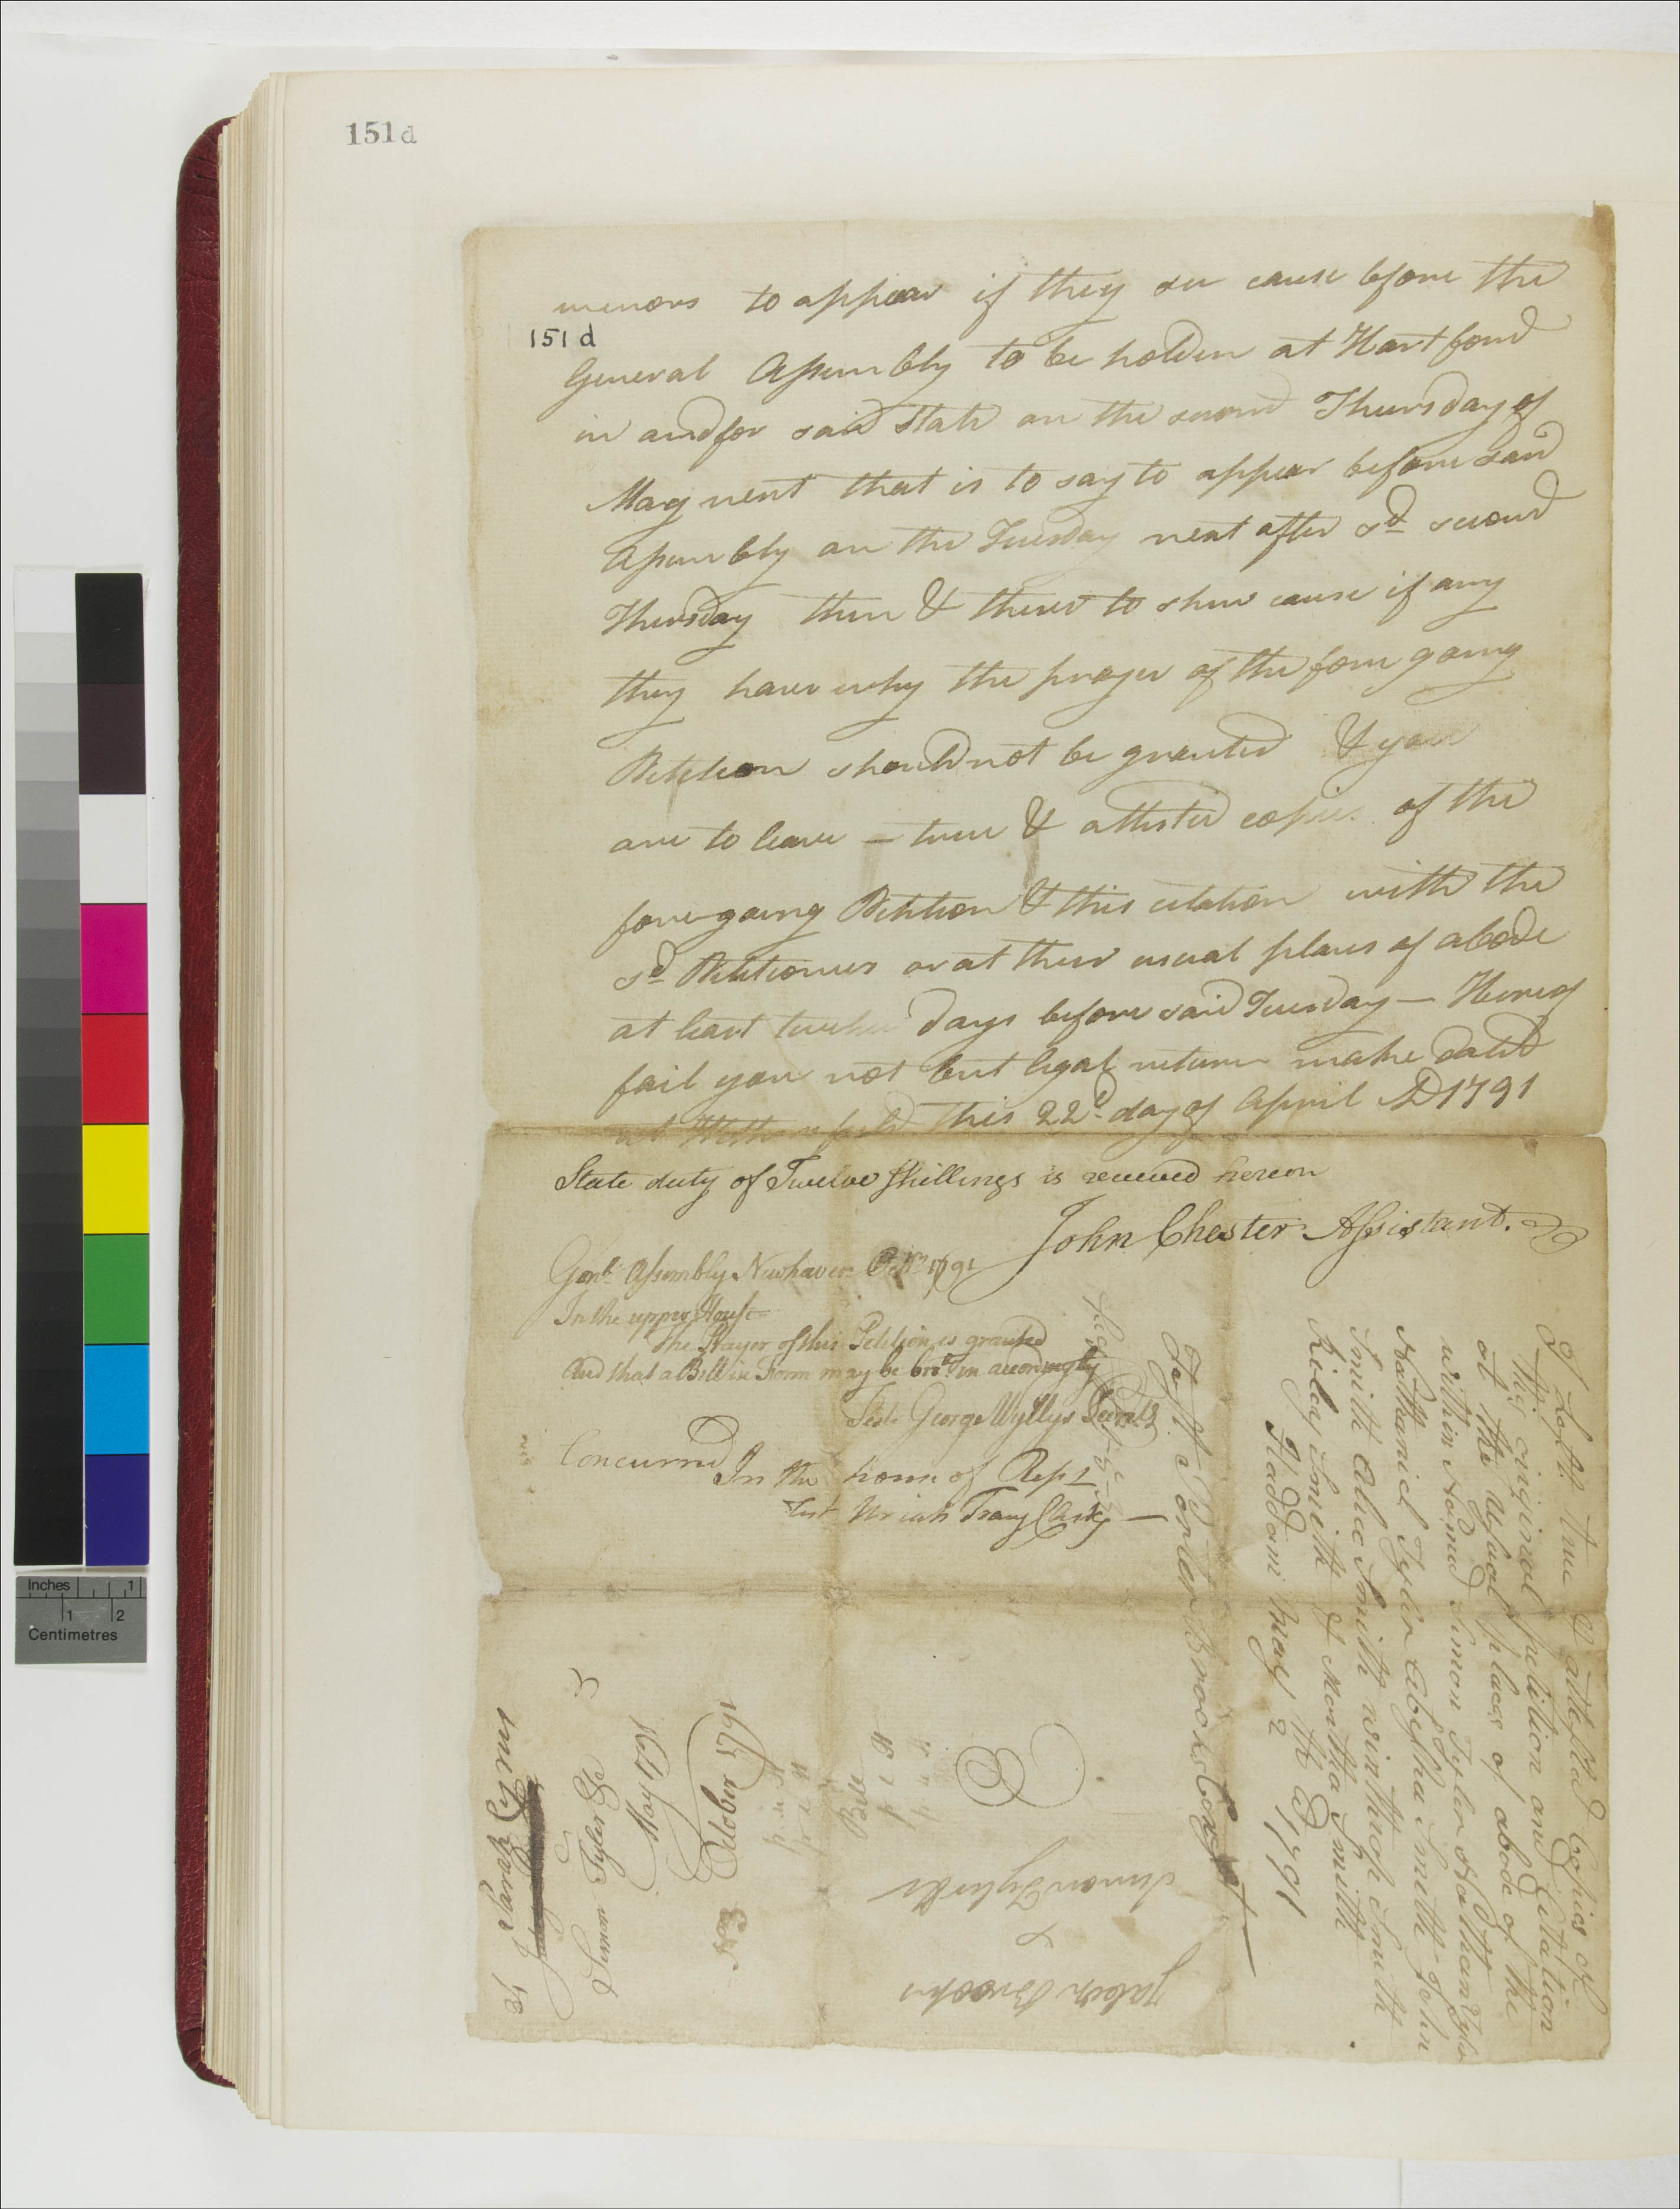 151d
minors to appear if they see cause before the
151 d
General Assembly to be holden at Hartford
in and for said State on the second Thursday of
May next that is to say to appear before said
Assembly on the Tuesday next after sd second
Thursday then & there to shew cause if any
they have why the prayer of the fore going
Petition should not be granted & you
are to leave – true & attested copies of the
fore going Petition & this citation with the
sd Petitioners or at their usual places of abode
at least twelve days before said Tuesday — Hereof
fail you not but legal return make dated
at Wethersfield this 22d day of April AD 1791
State duty of Twelve Shillings is received hereon
John Chester Assistant.
Genl Assembly Newhaven Octr 1791
In the upper House
The Prayer of this Petition is granted
And that a Bill in Form may be brot in accordingly
Test George Wyllys Secrety
Concurred In the house of Reps
Test Uriah Tracy Clerk —
I Left true & attested Copies of
this original petition and Citation
at the Usual places of abode of the
within Named Simon Tyler Nathan Tyler
Nathaniel Tyler Abesha Smith John
Smith Alice Smith winthrop Smith
Riley Smith & Martha Smith
Haddam May 2 th AD 1791
Test Porter Brooks Const
Jabez Brooks
&
Simon Tyler &c
Bill
October 1791
May 1791
Simon Tyler &c
Parsons Gran